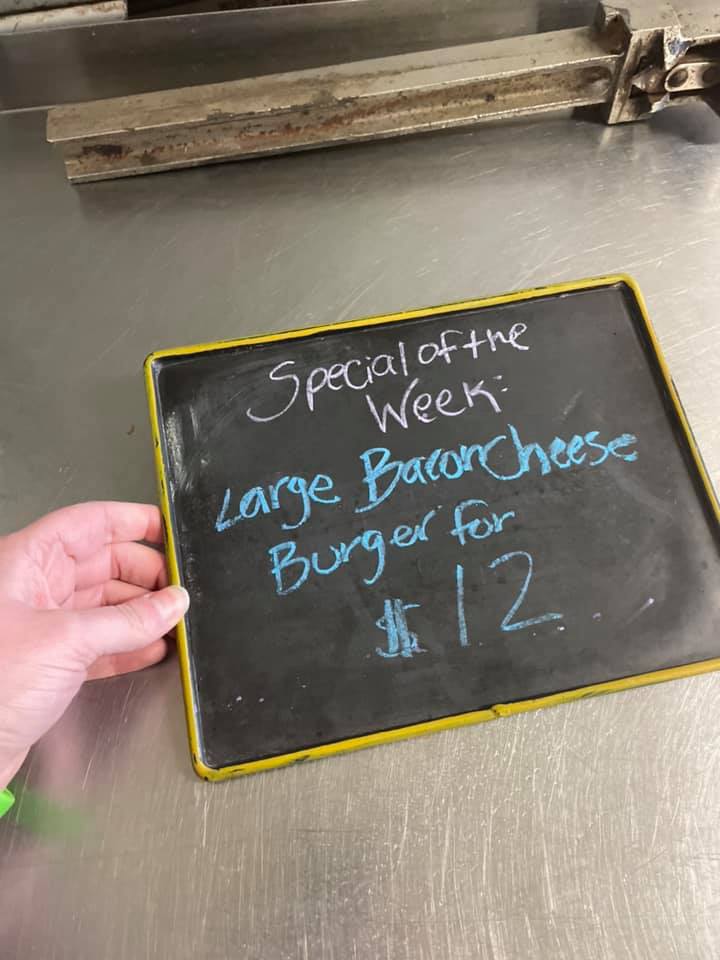 Special of the
Week:
Large Bacon Cheese
Burger for
$12